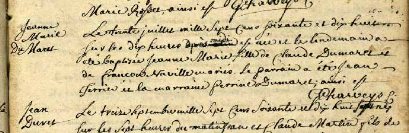 Marie Roset, ainsi est
Jeanne
Marie
Du Maret
Le trente juillet mille Sept Cens soixante et dix huit
sur les dix heures est née et le lendemain a
été baptisée Jeanne Marie fille de Claude Dumaret et
de Françoise mariés. le parrain a été Jean
et la marraine Dumaret; ainsi est
Jean
Le treize Septembre mille Sept Cens Soixante et dix huit
sur les Sept heures du matin est né Claude fils de